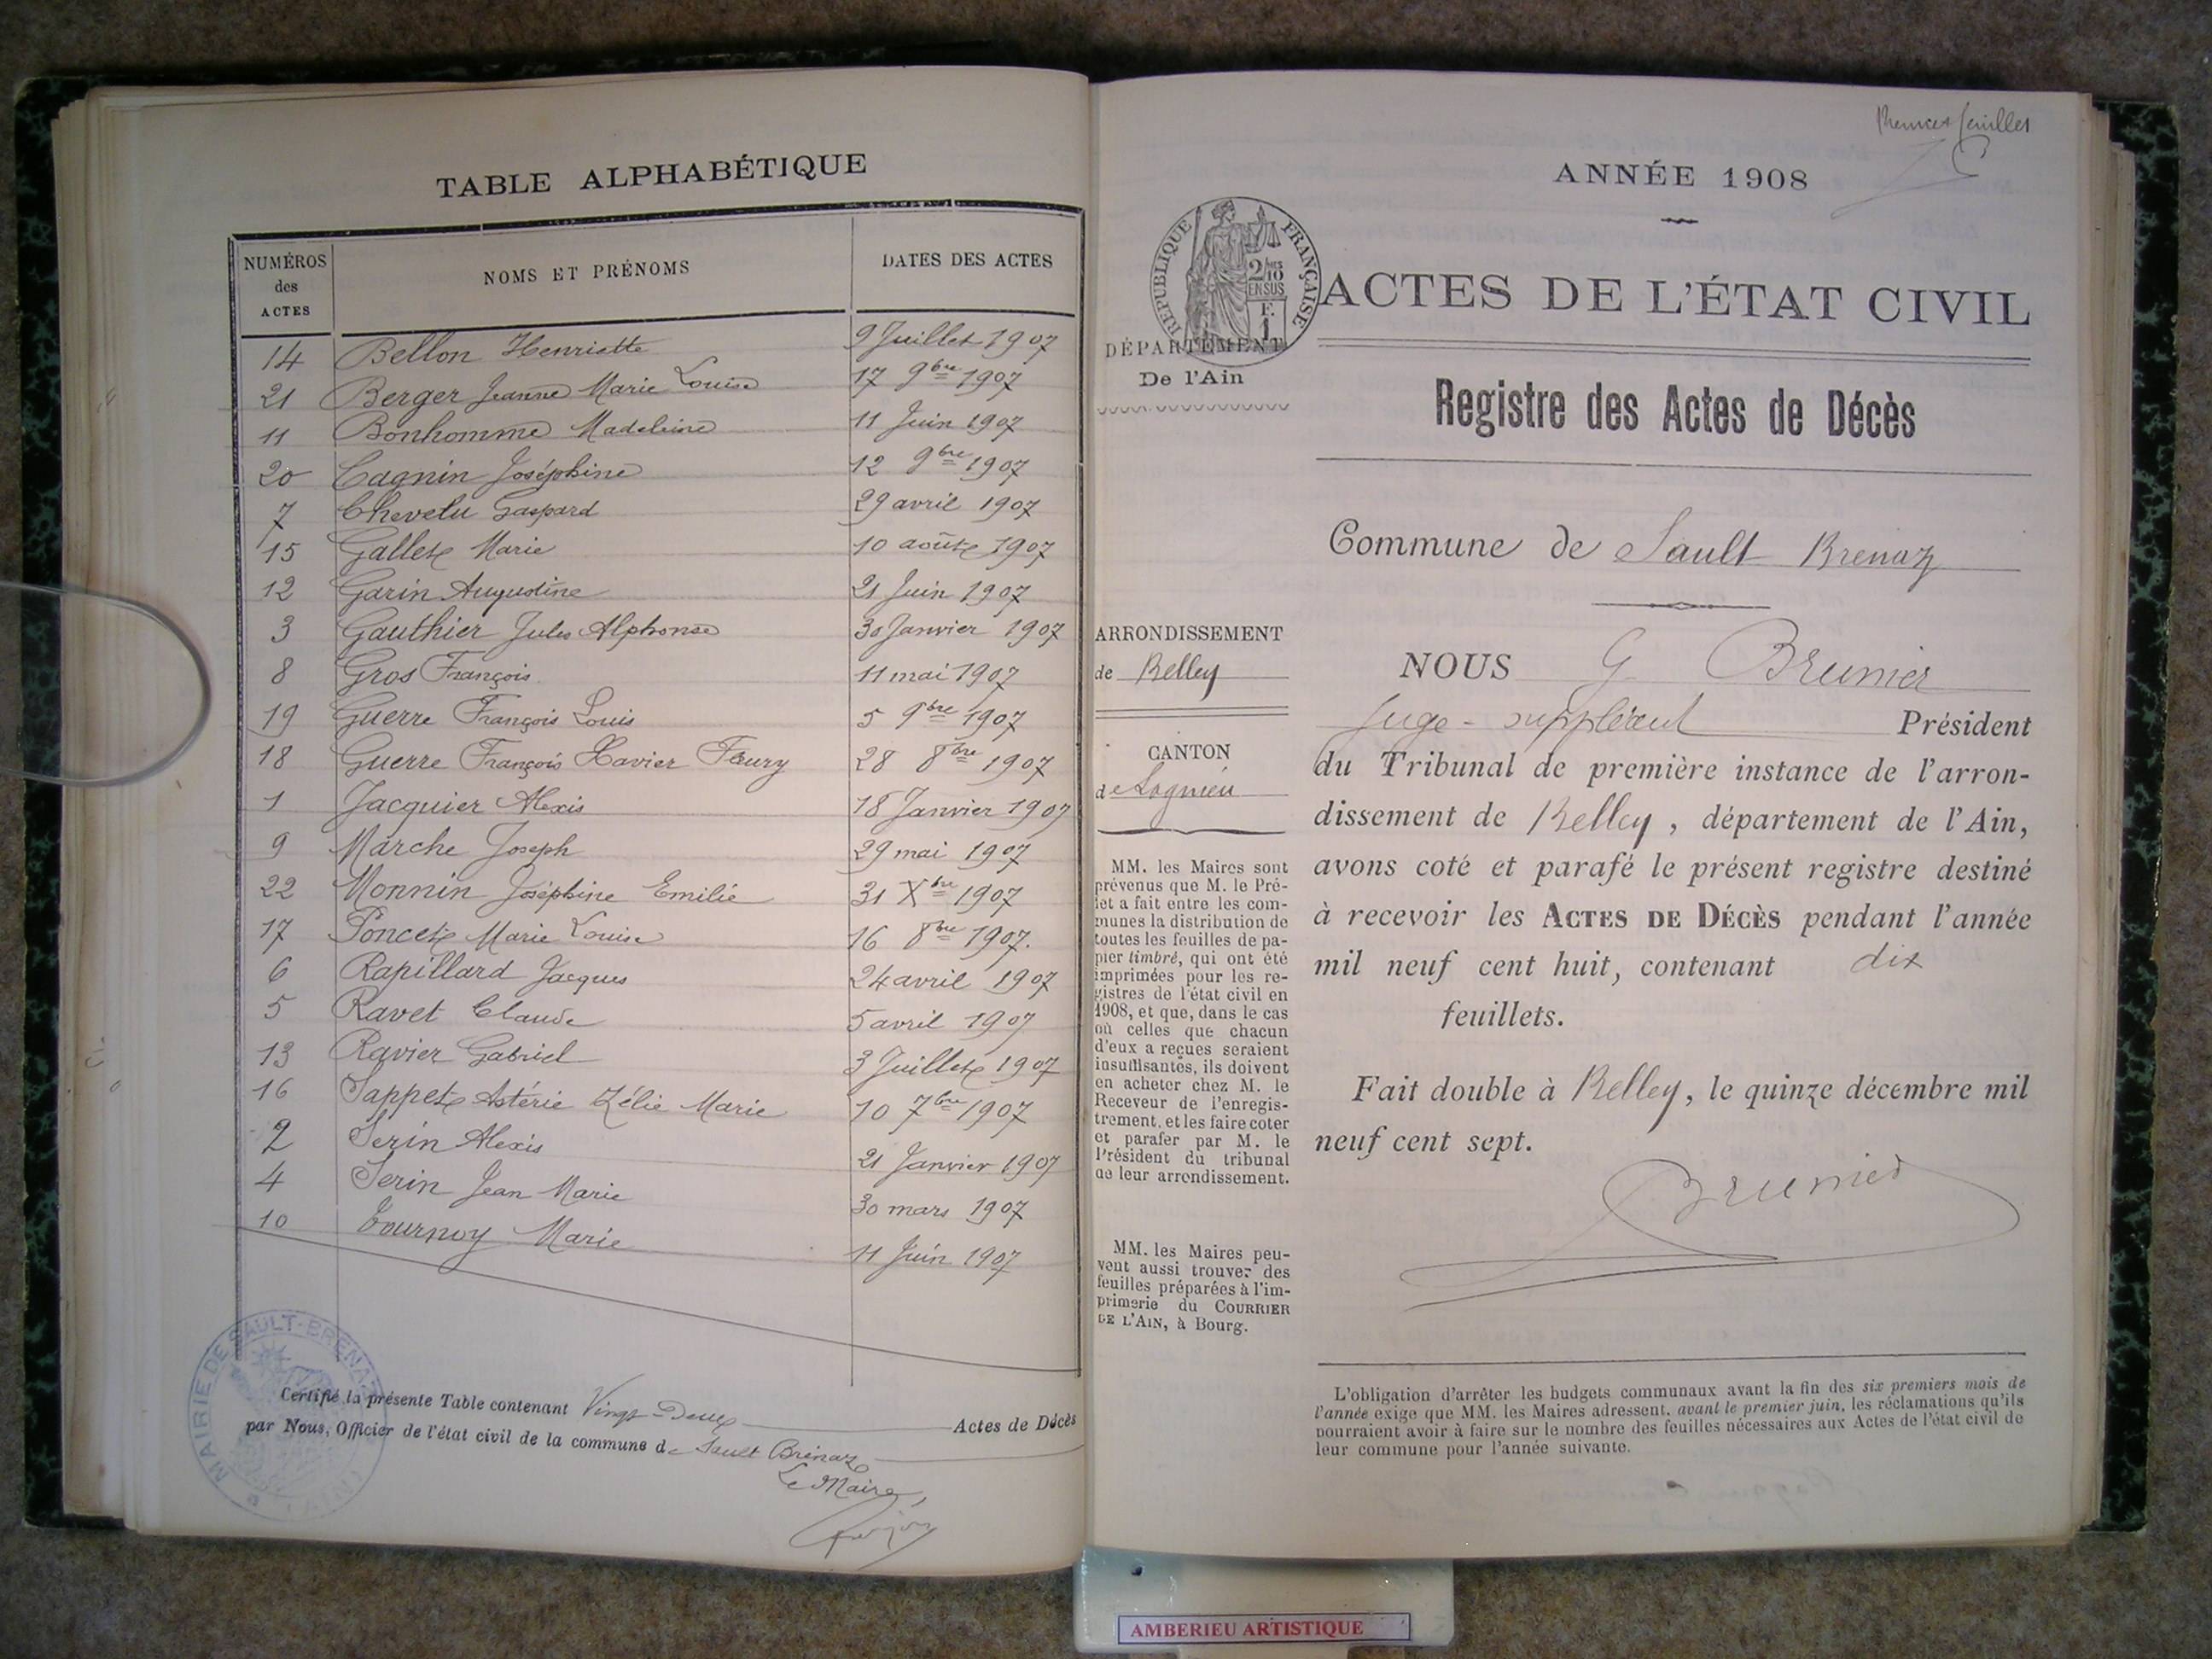 TABLE ALPHABÉTIQUE
NUMÉROS des ACTES NOMS ET PRÉNOMS DATES DES ACTES
14 Bellon Henriette 9 Juillet 1907
21 Berger Jeanne Marie Louise 17 9bre 1907
11 Bonhomme Madeleine 11 Juin 1907
20 Cagnin Joséphine 12 9bre 1907
7 Chevelu Gaspard 29 avril 1907
15 Gallet Marie 10 août 1907
12 Garin Augustine 21 Juin 1907
3 Gauthier Jules Alphonse 30 Janvier 1907
8 Gros François 11 mai 1907
19 Guerre François Louis 5 9bre 1907
18 Guerre François Xavier Fleury 28 8bre 1907
1 Jacquier Alexis 18 Janvier 1907
9 Marche Joseph 29 mai 1907
22 Monnin Joséphine Emilie 31 Xbre 1907
17 Poncet Marie Louise 16 8bre 1907.
6 Rapillard Jacques 24 avril 1907
5 Ravet Claude 5 avril 1907
13 Ravier Gabriel 3 Juillet 1907
16 Sappet Astérie Zélie Marie 10 7bre 1907
2 Serin Alexis 21 Janvier 1907
4 Serin Jean Marie 30 mars 1907
10 Tournoy Marie 11 Juin 1907
MAIRIE DE SAULT-BRENAZ (AIN)
Certifié la présente Table contenant Vingt-Deux Actes de Décès
par Nous, Officier de l'état civil de la commune de Sault Brénaz
Le Maire,
feuillets
ANNÉE 1908
RÉPUBLIQUE FRANÇAISE
2/10 EN SUS
F. 1
ACTES DE L'ÉTAT CIVIL
DÉPARTEMENT
De l'Ain
Registre des Actes de Décès
Commune de Sault Brenaz
ARRONDISSEMENT
de Belley
CANTON
de Lagnieu
MM. les Maires sont
prévenus que M. le Pré-
fet a fait entre les com-
munes la distribution de
toutes les feuilles de pa-
pier timbré, qui ont été
imprimées pour les re-
gistres de l'état civil en
1908, et que, dans le cas
où celles que chacun
d'eux a reçues seraient
insuffisantes, ils doivent
en acheter chez M. le
Receveur de l'enregis-
trement, et les faire coter
et parafer par M. le
Président du tribunal
de leur arrondissement.
MM. les Maires peu-
vent aussi trouver des
feuilles préparées à l'im-
primerie du COURRIER
DE L'AIN, à Bourg.
NOUS G Brunier
Juge-suppléant Président
du Tribunal de première instance de l'arron-
dissement de Belley, département de l'Ain,
avons coté et parafé le présent registre destiné
à recevoir les ACTES DE DÉCÈS pendant l'année
mil neuf cent huit, contenant dix
feuillets.
Fait double à Belley, le quinze décembre mil
neuf cent sept.
Brunier
L'obligation d'arrêter les budgets communaux avant la fin des six premiers mois de
l'année exige que MM. les Maires adressent, avant le premier juin, les réclamations qu'ils
pourraient avoir à faire sur le nombre des feuilles nécessaires aux Actes de l'état civil de
leur commune pour l'année suivante.
AMBERIEU ARTISTIQUE